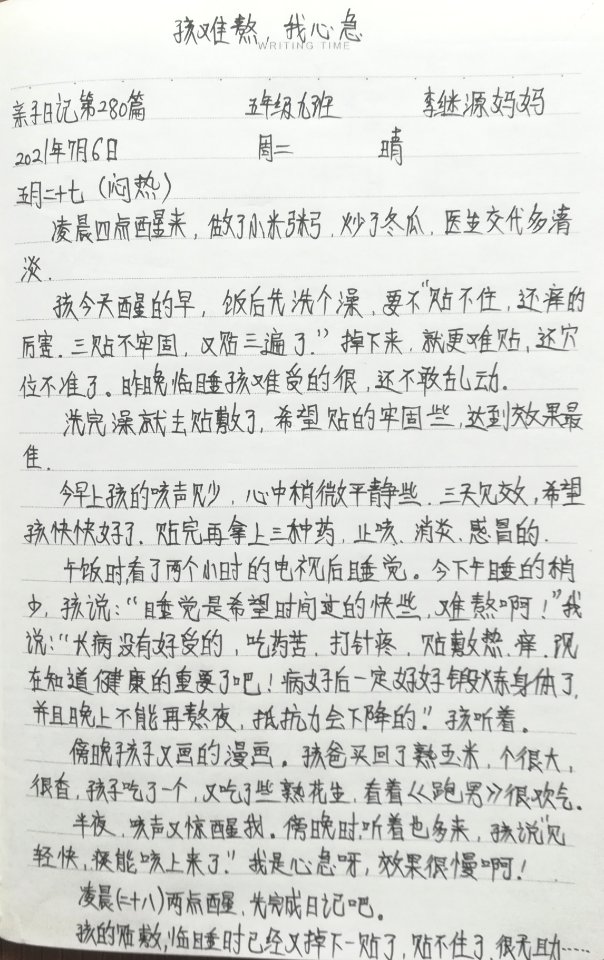 孩难熬，我心急
WRITING TIME
亲子日记第280篇 五年级九班 李继源妈妈
2021年7月6日 周二 晴
五月二十七（闷热）
凌晨四点醒来，做了小米粥，炒了冬瓜，医生交代多清
淡．
孩今天醒的早，饭后先洗个澡，要不"贴不住，还痒的
厉害．三贴不牢固，又贴三遍了．"掉下来，就更难贴，还穴
位不准了。昨晚临睡孩难受的很，还不敢乱动．
洗完澡就去贴敷了，希望贴的牢固些，达到效果最
佳．
今早上孩的咳声见少，心中稍微平静些．三天见效，希望
孩快快好了．贴完再拿上三种药，止咳、消炎、感冒的．
午饭时，看了两个小时的电视后睡觉。今下午睡的稍
少，孩说："睡觉是希望时间过的快些，难熬啊！"我
说："长病没有好受的，吃药苦，打针疼，贴敷热、痒．现
在知道健康的重要了吧！病好后一定好好锻炼身体了，
并且晚上不能再熬夜，抵抗力会下降的．"孩听着。
傍晚孩子又画的漫画。孩爸买回了熟玉米，个很大，
很香，孩子吃了一个，又吃了些熟花生，看着《跑男》很欢气。
半夜，咳声又惊醒我。傍晚时，听着也多来，孩说"见
轻快，痰能咳上来了．"我是心急呀，效果很慢啊！
凌晨（二十八）两点醒，先完成日记吧。
孩的贴敷，临睡时已经又掉下一贴了，贴不住了，很无助……